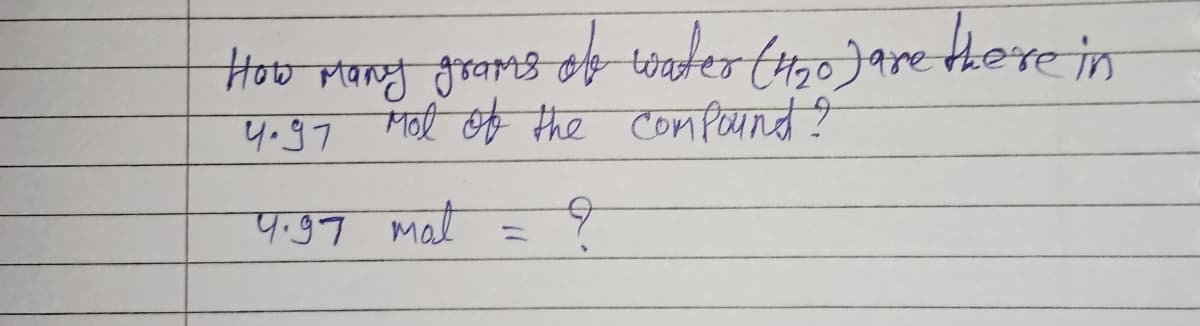 How many grams of water (H20) are there in
4.97 Mol of the compound?
4.97 mol = ?